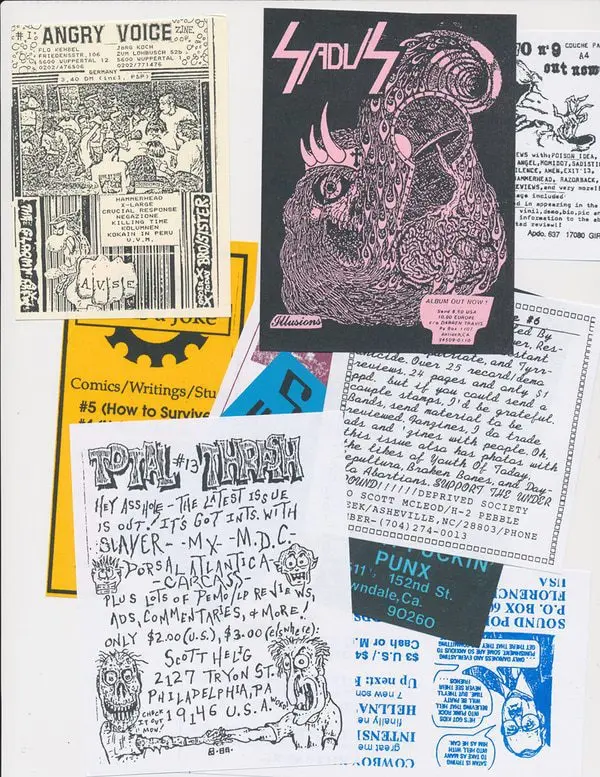 #1 ANGRY VOICE ZINE
FLO KEHBEL
FRIEDENSSTR.106
5600 WUPPERTAL 12
0202/476506
JÖRG KOCH
ZUM LOHBUSCH 52b
5600 WUPPERTAL 1
0202/771476
GERMANY
3,40 DM (incl. P&P)
HAMMERHEAD
X-LARGE
CRUCIAL RESPONSE
NEGAZIONE
KILLING TIME
KOLUMNEN
KOKAIN IN PERU
U.V.M.
SADUS
ALBUM OUT NOW!
Send 8.50 USA
10.00 EUROPE
c/o DARREN TRAVIS
Po Box 1107
Antioch, CA
94509-0110
Illusions
O nº9 COUCHE PA
A4
out now
EWS with: POISON IDEA,
ANGEL, HOMIDOT, SADISTI
ILENCE, AMEN, EXIT'13,
HAMMERHEAD, RAZORBACK,
EVIEWS, and very more!!
age included
d in appearing in the
vinil, demo, bio, pic and
information to the ab
ted review!!
Apdo. 637 17080 GIR
a JOKE
Comics/Writings/Stu
#5 (How to Survive
e #6
ed By
ver, Res-
nstant
icide. Over 25 record/demo
reviews. 24 pages and only $1
ppd. but if you could send a
couple stamps, I'd be grateful.
Bands, send material to be
reviewed, Fanzines, I do trade
ads and 'zines with people. Oh,
this issue also has photos with
the likes of Youth Of Today,
epultura, Broken Bones, and Day-
lo Abortions. SUPPORT THE UNDER
ROUND!/////DEPRIVED SOCIETY
O SCOTT MCLEOD/H-2 PEBBLE
EEK/ASHEVILLE, NC/28803/PHONE
MBER-(704) 274-0013
TOTAL #13 THRASH
HEY ASSHOLE-THE LATEST ISSUE
IS OUT! IT'S GOT INTS. WITH
SLAYER--MX--M.D.C-
DORSAL ATLANTICA-
-CARCASS-
PLUS LOTS OF DEMO/LP REVIEWS,
ADS, COMMENTARIES, & MORE!
ONLY $2.00 (U.S.), $3.00 (elsewhere):
SCOTT HELIG
2127 TRYON ST.
PHILADELPHIA, PA
19146 U.S.A.
CHECK
IT OUT
NOW!
8-88-
PUNX
11's 152nd St.
wndale, Ca.
90260
SOUND PO
P.O. BOX 6
FLORENC
USA
$3 U.S./$4
Cash or M
Up next:
7 new son
HELLNA
finally me
INTENS
great me
COWBO
ONLY DARKNESS AND EVERLASTING
OUT THERE THAT
HE'S GOT KIDS
BELIEVING THAT
PUNK ROCK
WILL BE PARTY
TIME, BUT THEY'LL
NEVER SEE THEIR
FRIENDS
SATAN IS TRYING
TO TAKE AS MANY
WITH HIM AS HE CAN.